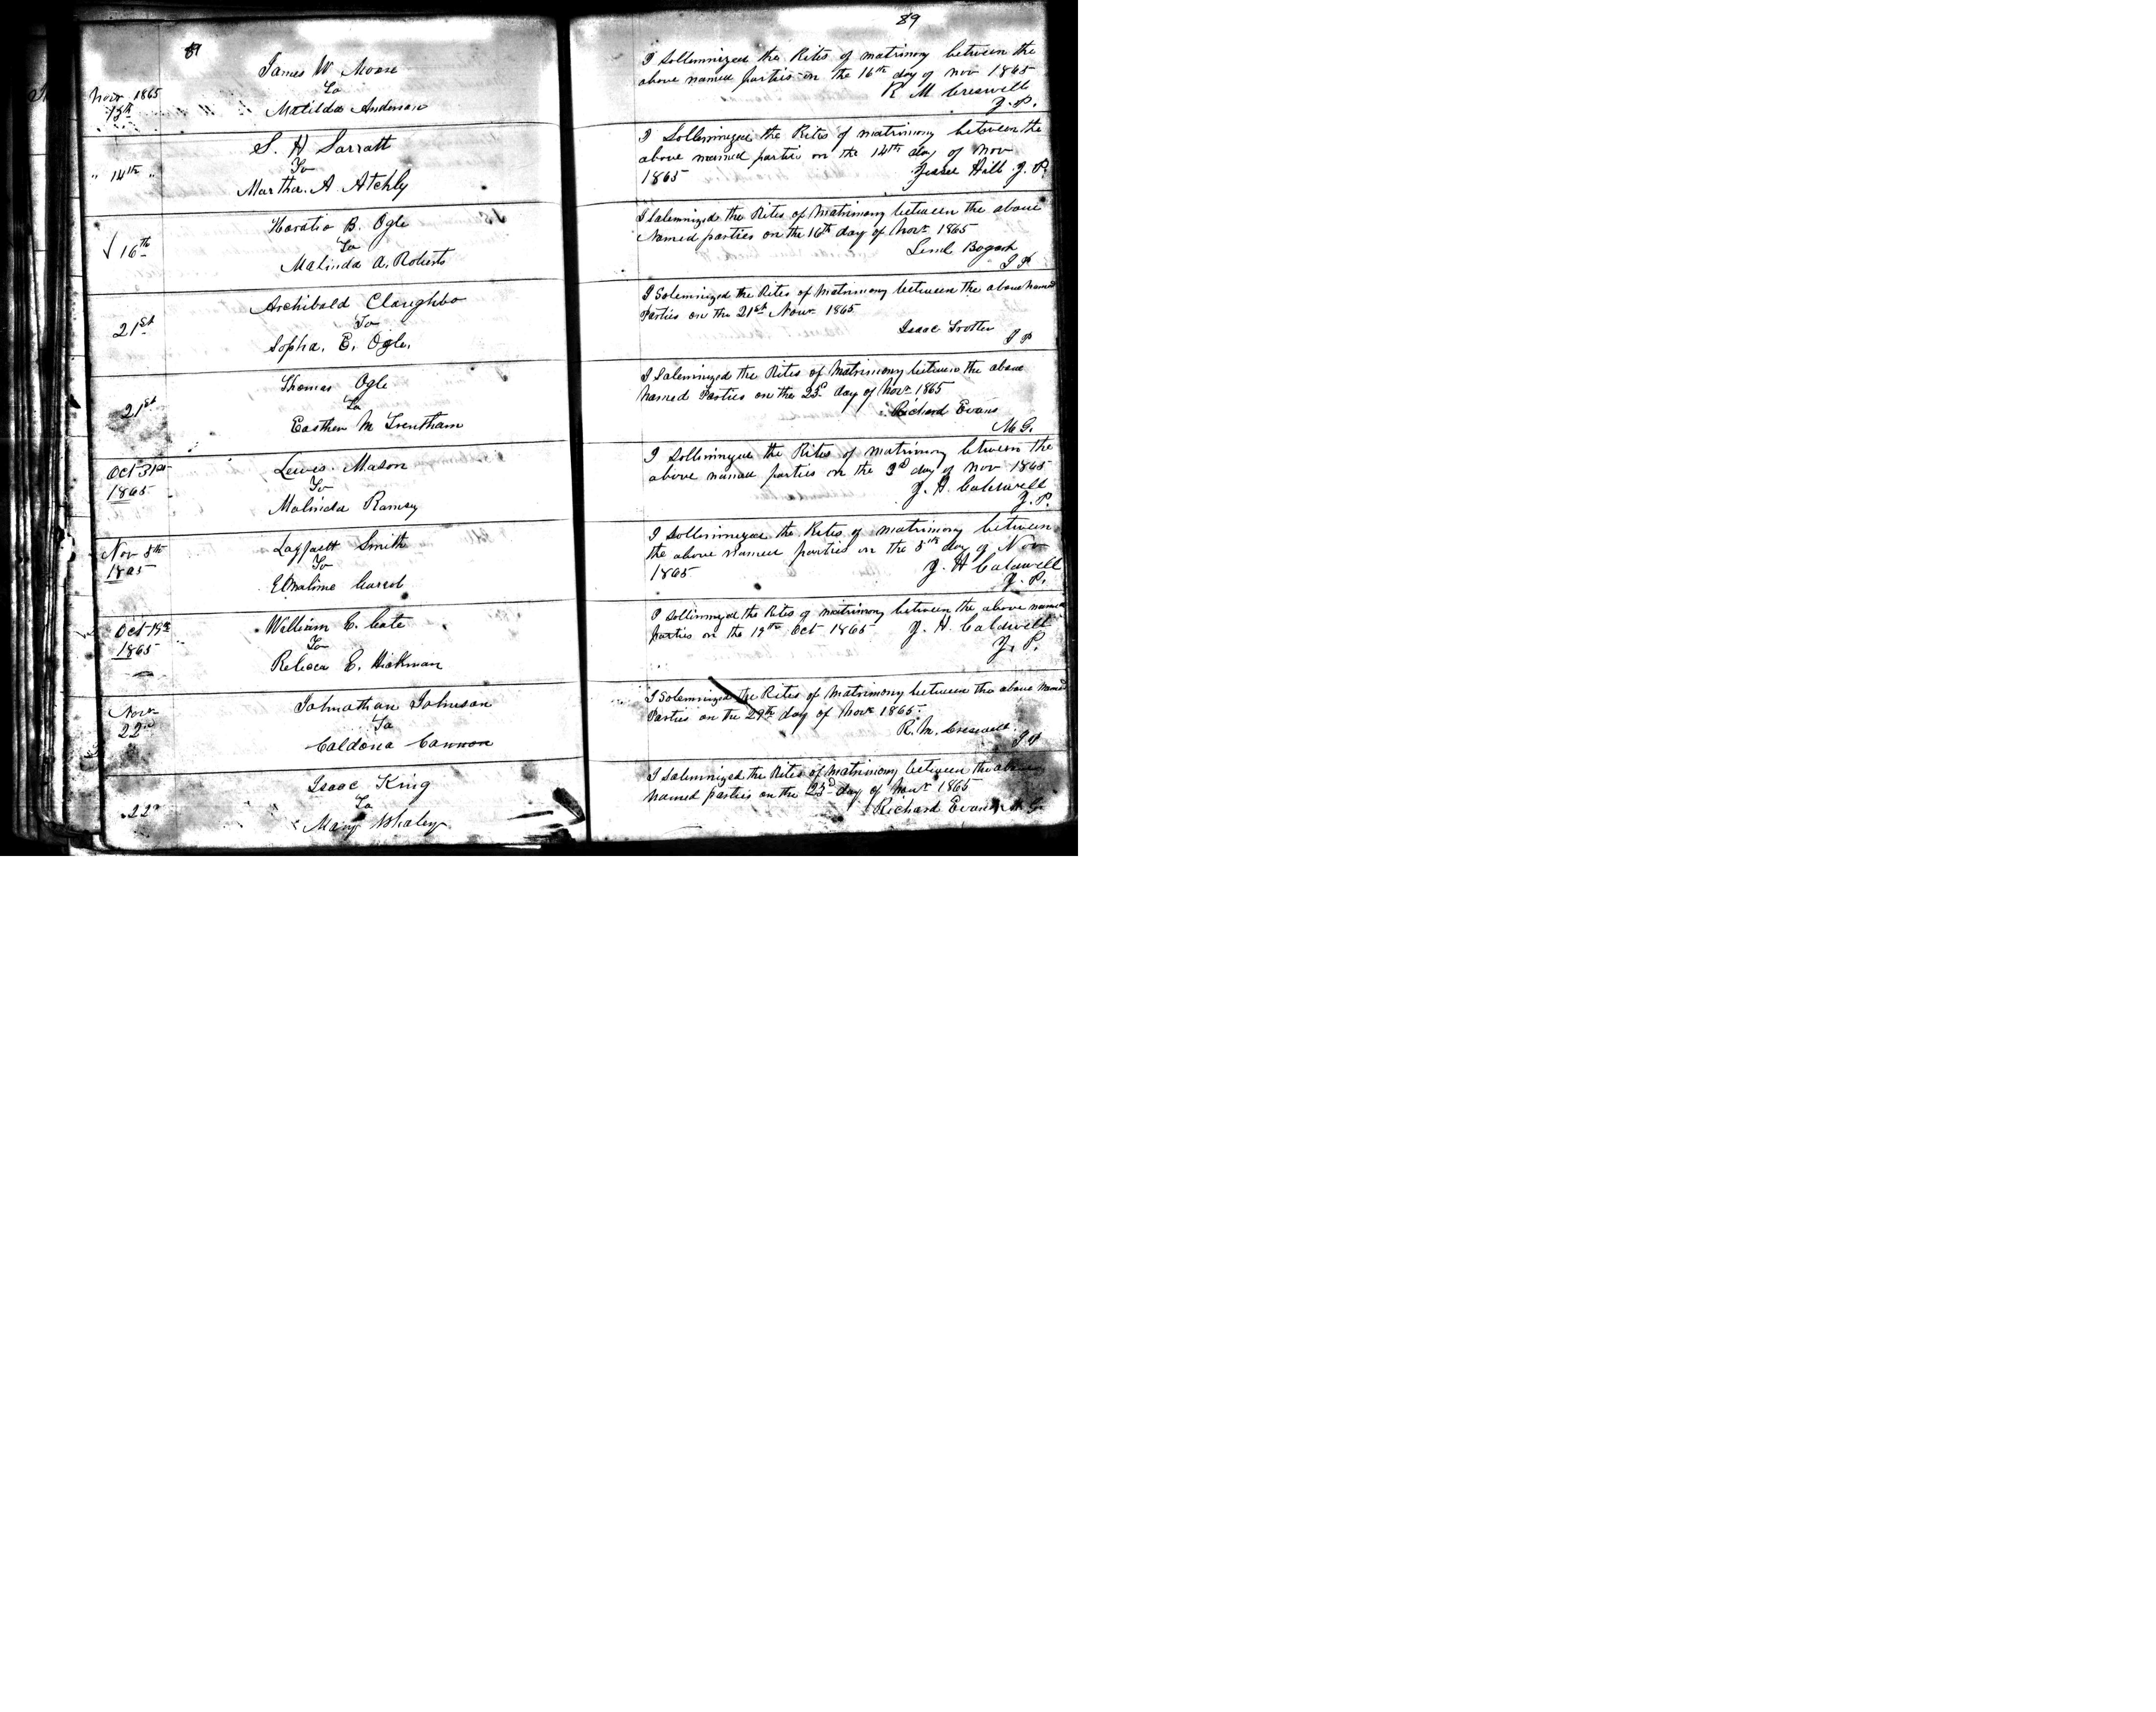 89
Nov 1865
James W Moore
To
Matilda Anderson
" 14th "
S. H Sarratt
To
Martha. A Atchly
16th
Horatio B. Ogle
To
Malinda A. Roberts
21st
Archibald Claughbo
To
Sopha. E. Ogle.
21st
Thomas Ogle
To
Easther M Trentham
Oct 31st
1865
Lewis Mason
To
Malinda Ramsey
Nov 8th
1865
Smith
To
Oct 19th
1865
William C. Cate
To
Rebeca E. Hickman
Novr
22nd
Johnathan Johnson
To
Caldona Cannon
22nd
Isaac King
To
Mary Whaley
89
I Sollemnized the Rites of matrimony between the
above named parties on the 16th day of nov 1865
R M Creswell
J. P.
I Sollemnized the Rites of matrimony between the
above named parties on the 14th day of nov
1865 Jesse Hill J. P.
I Solemnized the Rites of Matrimony between the above
Named parties on the 16th day of Novr 1865
Leml Bogart
J P
I Solemnized the Rites of Matrimony between the above named
Parties on the 21st Novr 1865
Isaac Trotter
J P
I Solemnized the Rites of Matrimony between the above
Named Parties on the 23d day of Novr 1865
Richard Evans
M G.
I Sollemnized the Rites of matrimony between the
above named parties on the 3d day of nov 1865
J. H. Caldwell
J. P.
I Sollemnized the Rites of matrimony between
the above named parties on the 8th day of Nov
1865 J. H Caldwell
J. P.
I Sollemnized the Rites of matrimony between the above named
parties on the 19th Oct 1865 J. H. Caldwell
J. P.
I Solemnized the Rites of Matrimony between the above Named
Parties on the 29th day of Novr 1865.
R. M. Creswell.
J P
I Solemnized the Rites of Matrimony between the above
Named parties on the 23d day of Novr 1865
Richard Evans M G.